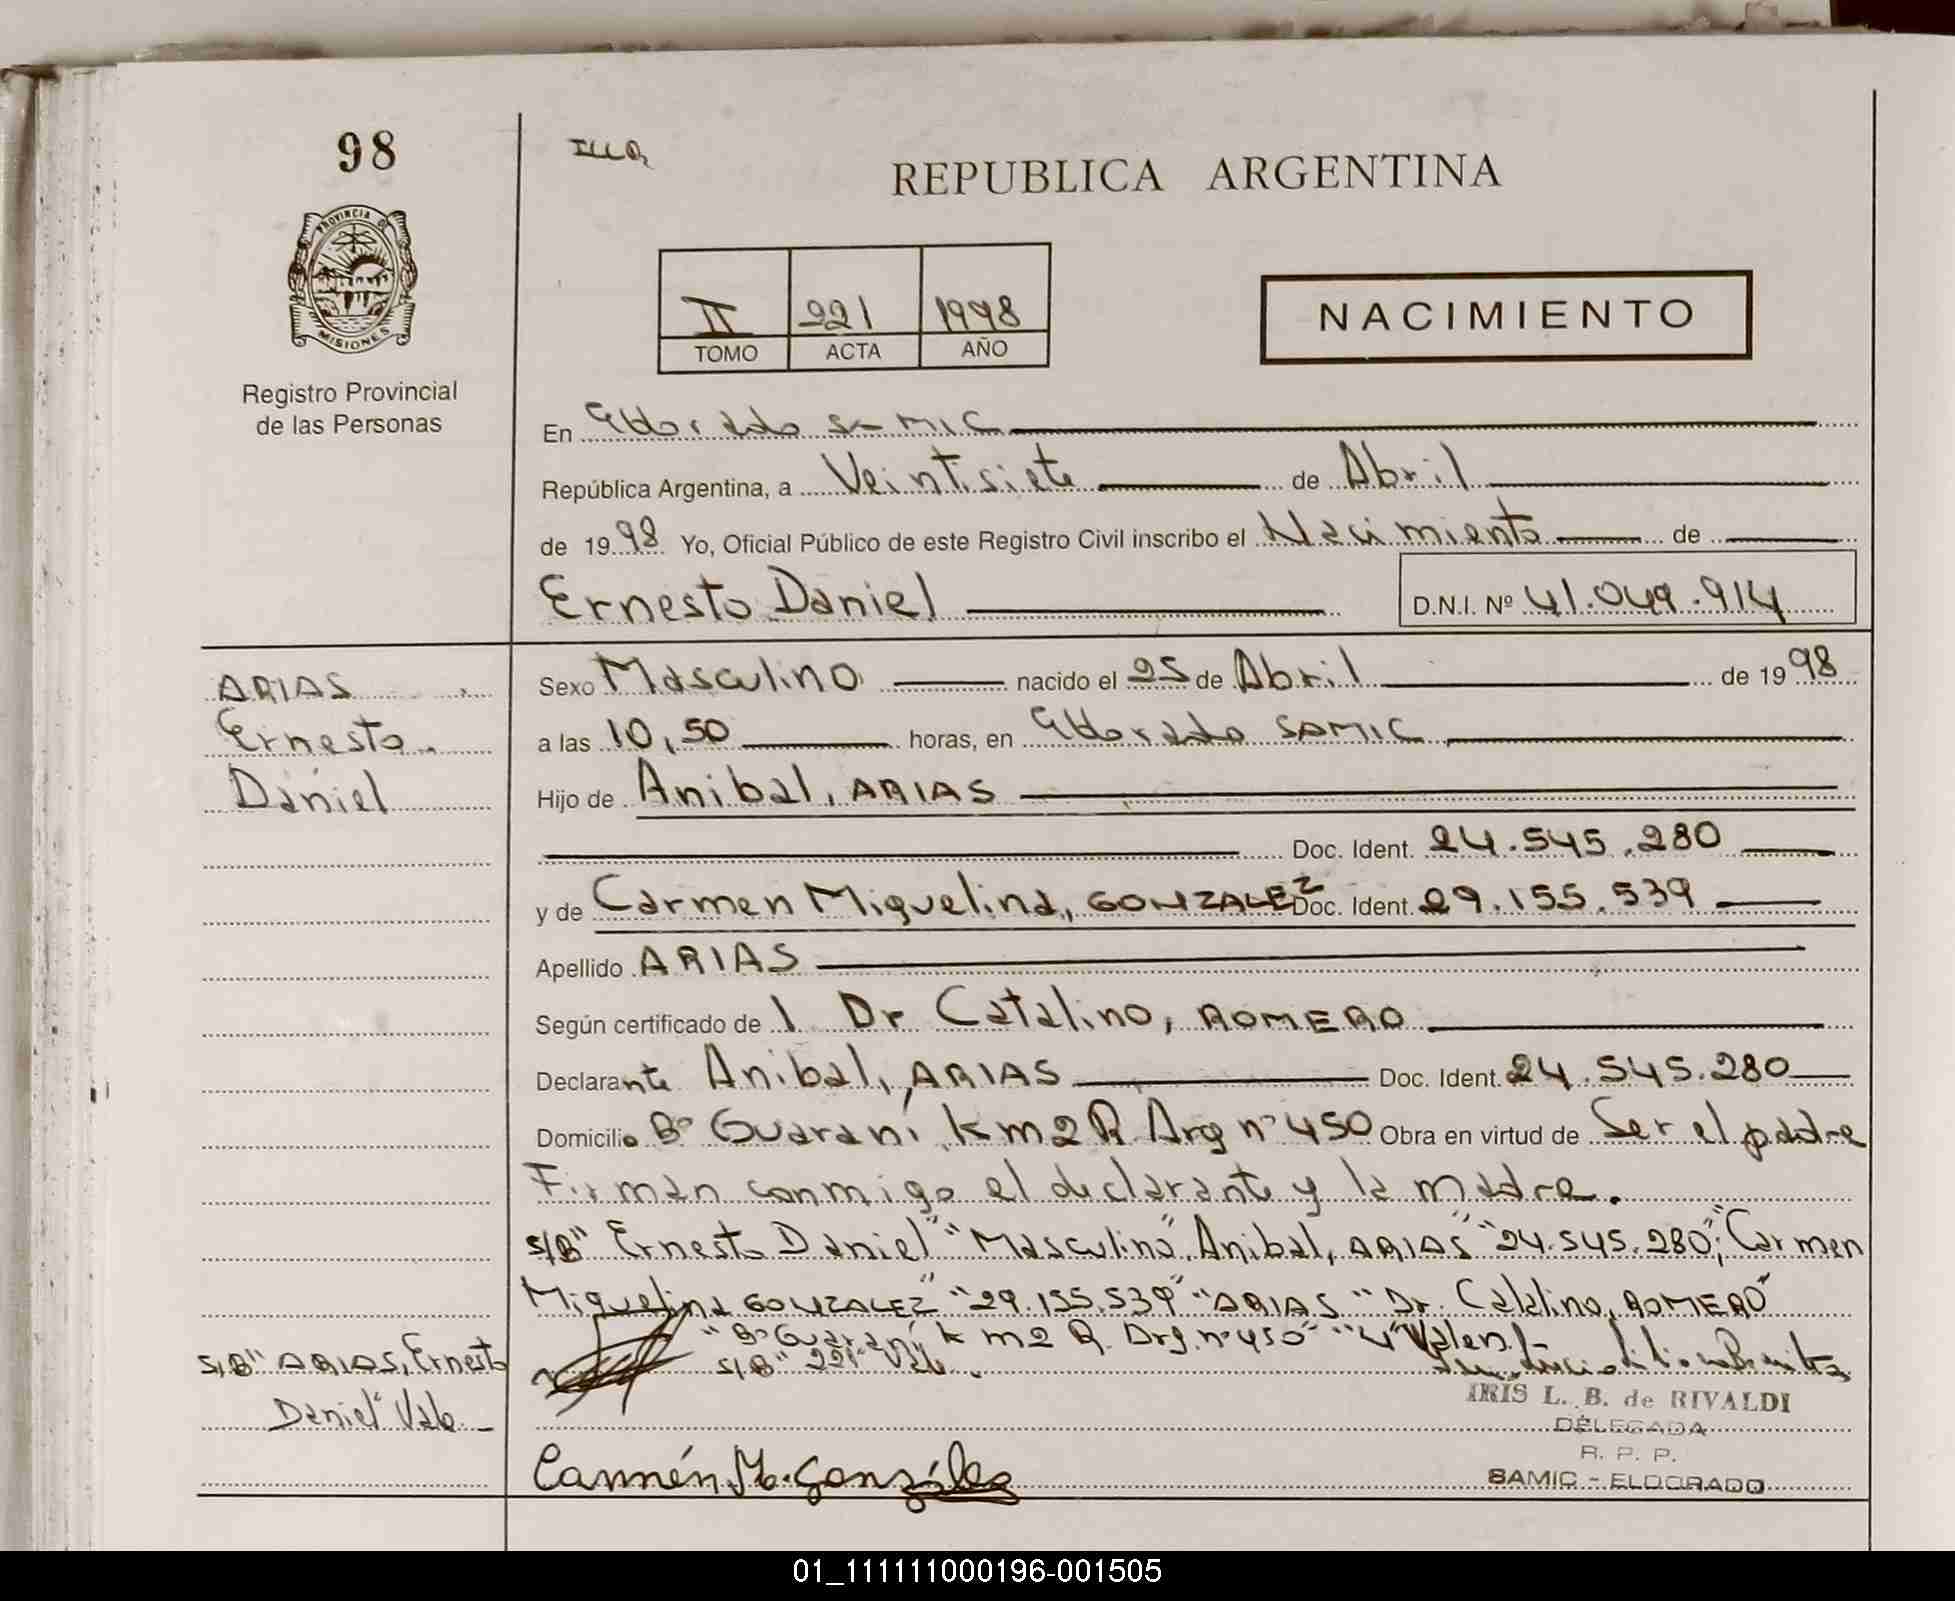 98
REPUBLICA ARGENTINA
PROVINCIA DE
MISIONES
II 221 1998
TOMO ACTA AÑO
NACIMIENTO
Registro Provincial
de las Personas
En Eldorado SAMIC
República Argentina, a Veintisiete de Abril
de 1998 Yo, Oficial Público de este Registro Civil inscribo el Nacimiento de
Ernesto Daniel D.N.I. Nº 41.049.914
ARIAS
Ernesto
Daniel
Sexo Masculino nacido el 25 de Abril de 1998
a las 10,50 horas, en Eldorado SAMIC
Hijo de Anibal, ARIAS
Doc. Ident. 24.545.280
y de Carmen Miguelina, GONZALEZ Doc. Ident. 29.155.539
Apellido ARIAS
Según certificado de l Dr Catalino, ROMERO
Declarante Anibal, ARIAS Doc. Ident. 24.545.280
Domicilio Bº Guaraní km 2 R. Arg nº 450 Obra en virtud de Ser el padre
Firman conmigo el declarante y la madre.
S/B" Ernesto Daniel" "Masculino" Anibal, ARIAS" "24.545.280", "Carmen
Miguelina GONZALEZ" "29.155.539" "ARIAS" "Dr. Catalino, ROMERO"
"Bº Guaraní k m 2 R. Arg. nº 450" "4" Valen.
S/B" 221" Vale.
S/B" ARIAS, Ernesto
Daniel" Vale
IRIS L. B. de RIVALDI
DELEGADA
R. P. P.
SAMIC - ELDORADO
Carmén M. González
01_111111000196-001505